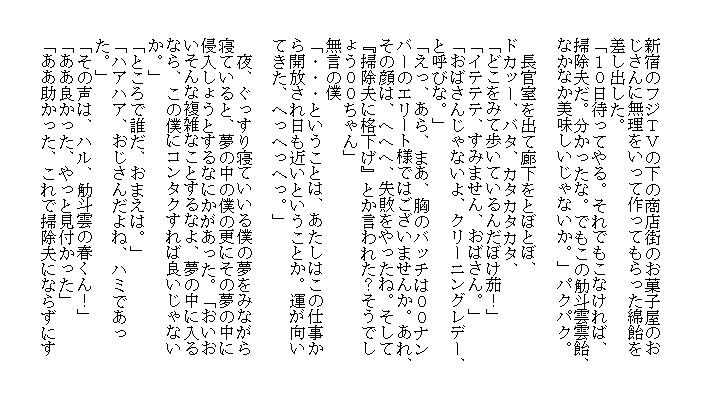 新宿のフジＴＶの下の商店街のお菓子屋のお
じさんに無理をいって作ってもらった綿飴を
差し出した。
「１０日待ってやる。それでもこなければ、
掃除夫だ。分かったな。でもこの觔斗雲雲飴、
なかなか美味しいじゃないか。」パクパク。
長官室を出て廊下をとぼとぼ、
ドカッー、バタ、カタカタカタ、
「どこをみて歩いているんだぼけ茄！」
「イテテテ、すみません、おばさん。」
「おばさんじゃないよ、クリーニングレデー、
と呼びな。」
「えっ、あら、まあ、胸のバッチは００ナン
バーのエリート様ではございませんか。あれ、
その顔は、へへへ、失敗をやったね。そして
『掃除夫に格下げ』とか言われた？そうでし
ょう００ちゃん」
無言の僕
「・・・ということは、あたしはこの仕事か
ら開放され日も近いということか。運が向い
てきた、へっへっへっ。」
夜、ぐっすり寝ていいる僕の夢をみながら
寝ていると、夢の中の僕の更にその夢の中に
侵入しょうとするなにかがあった。「おいお
いそんな複雑なことするなよ、夢の中に入る
なら、この僕にコンタクすれば良いじゃない
か。」
「ところで誰だ、おまえは。」
「ハアハア、おじさんだよね、ハミであっ
た。」
「その声は、ハル、觔斗雲の春くん！」
「ああ良かった、やっと見付かった」
「ああ助かった、これで掃除夫にならずにす